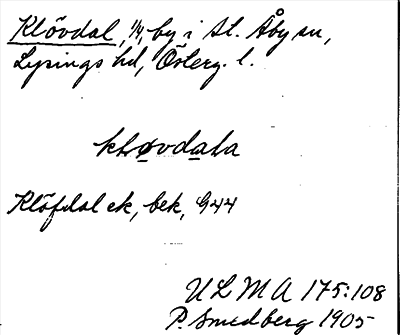 Klövdal, 1/4, by i St. Åby sn,
Lysings hd, Österg. l.
kløvdala
Klöfdal ek, bek, 944
ULMA 175:108
P. Smedberg 1905